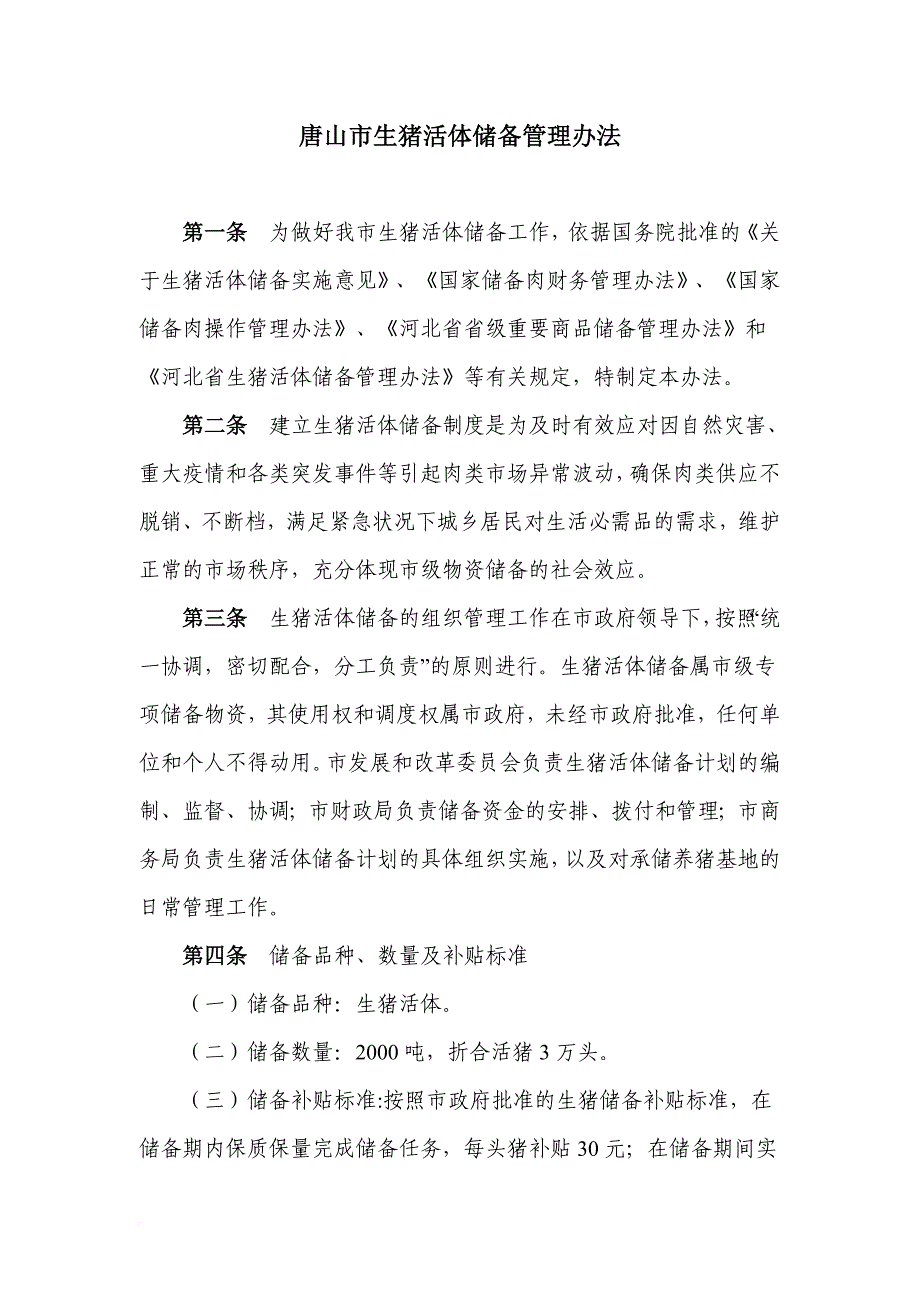 唐山市生猪活体储备管理办法
第一条　为做好我市生猪活体储备工作，依据国务院批准的《关
于生猪活体储备实施意见》、《国家储备肉财务管理办法》、《国家
储备肉操作管理办法》、《河北省省级重要商品储备管理办法》和
《河北省生猪活体储备管理办法》等有关规定，特制定本办法。
第二条　建立生猪活体储备制度是为及时有效应对因自然灾害、
重大疫情和各类突发事件等引起肉类市场异常波动，确保肉类供应不
脱销、不断档，满足紧急状况下城乡居民对生活必需品的需求，维护
正常的市场秩序，充分体现市级物资储备的社会效应。
第三条　生猪活体储备的组织管理工作在市政府领导下，按照“统
一协调，密切配合，分工负责”的原则进行。生猪活体储备属市级专
项储备物资，其使用权和调度权属市政府，未经市政府批准，任何单
位和个人不得动用。市发展和改革委员会负责生猪活体储备计划的编
制、监督、协调；市财政局负责储备资金的安排、拨付和管理；市商
务局负责生猪活体储备计划的具体组织实施，以及对承储养猪基地的
日常管理工作。
第四条　储备品种、数量及补贴标准
（一）储备品种：生猪活体。
（二）储备数量：2000 吨，折合活猪 3 万头。
（三）储备补贴标准:按照市政府批准的生猪储备补贴标准，在
储备期内保质保量完成储备任务，每头猪补贴 30 元；在储备期间实